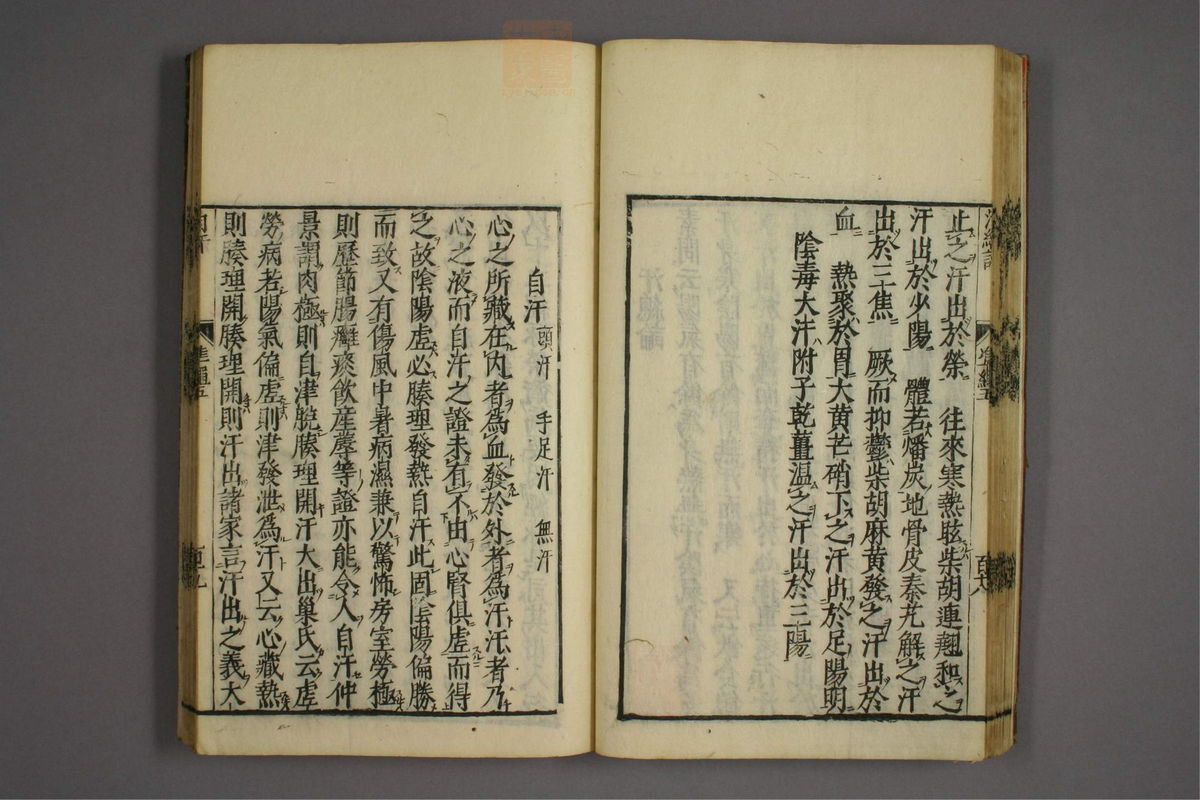 止之汗出於榮 往來寒熱眩柴胡連翹和之
汗出於少陽 體若燔炭地骨皮秦艽解之汗
出於三焦 厥而抑鬱柴胡麻黄發之汗出於
血 熱聚於胃大黄芒硝下之汗出於足陽明
陰毒大汗附子乾薑温之汗出於三陽
自汗 頭汗 手足汗 無汗
心之所藏在内者為血發於外者為汗汗者乃
心之液而自汗之證未有不由心腎俱虚而得
之故陰陽虚必腠理發熱自汗此固陰陽偏勝
而致又有傷風中暑病濕兼以驚怖房室勞極
則歷節腸癰痰飲産蓐等證亦能令人自汗仲
景謂肉極則自津脱腠理開汗大出巢氏云虚
勞病若陽氣偏虚則津發泄為汗又云心藏熱
則腠理開腠理開則汗出諸家言汗出之義大